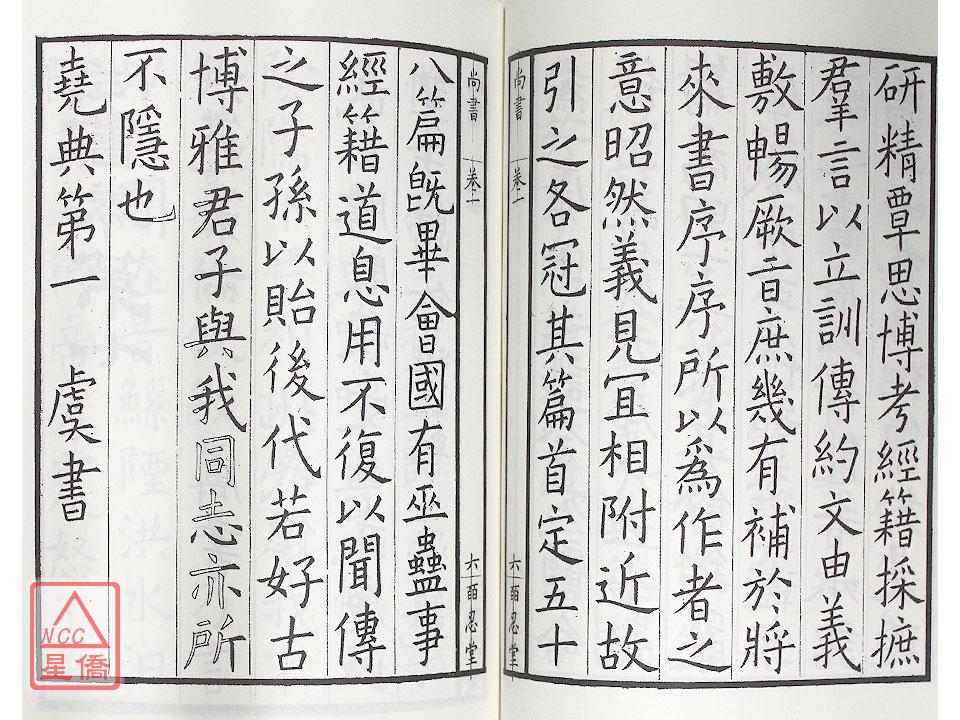 研精覃思博考經籍採摭
羣言以立訓傳約文由義
敷暢厥旨庶幾有補於將
來書序序所以爲作者之
意昭然義見冝相附近故
引之各冠其篇首定五十
尚書 卷一 六 皕忍堂
尚書 卷一 六 皕忍堂
八篇旣畢會國有巫蠱事
經籍道息用不復以聞傳
之子孫以貽後代若好古
博雅君子與我同志亦所
不隱也
堯典第一 虞書
NCC
星僑